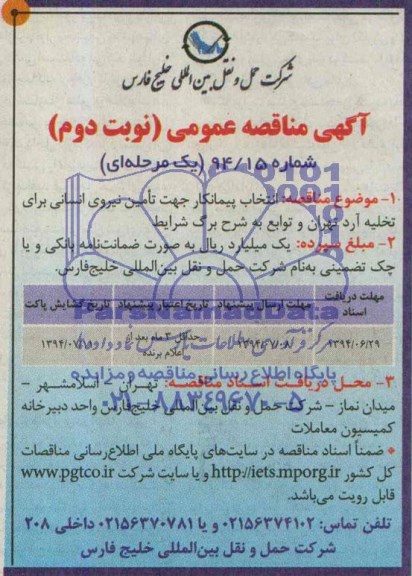 شرکت حمل و نقل بین‌المللی خلیج فارس
آگهی مناقصه عمومی (نوبت دوم)
شماره ۹۴/۱۵ (یک مرحله‌ای)
۱- موضوع مناقصه: انتخاب پیمانکار جهت تأمین نیروی انسانی برای
تخلیه آرد تهران و توابع به شرح برگ شرایط
۲- مبلغ سپرده: یک میلیارد ریال به صورت ضمانت‌نامه بانکی و یا
چک تضمینی به‌نام شرکت حمل و نقل بین‌المللی خلیج‌فارس.
مهلت دریافت اسناد مهلت ارسال پیشنهاد تاریخ اعتبار پیشنهاد تاریخ گشایش پاکت
۱۳۹۴/۰۶/۲۹ ۱۳۹۴/۰۷/۰۸ حداقل ۳ ماه بعد از اعلام برنده
ParsNamadData
پایگاه اطلاع رسانی مناقصه و مزایده
۰۲۱-۸۸۳۴۹۶۷۰-۵
۳- محل دریافت اسناد مناقصه: تهران - اسلامشهر -
میدان نماز - شرکت حمل و نقل بین‌المللی خلیج‌فارس واحد دبیرخانه
کمیسیون معاملات
* ضمناً اسناد مناقصه در سایت‌های پایگاه ملی اطلاع‌رسانی مناقصات
کل کشور http://iets.mporg.ir و یا سایت شرکت www.pgtco.ir
قابل رویت می‌باشد.
تلفن تماس: ۰۲۱۵۶۳۷۴۱۰۲ و یا ۰۲۱۵۶۳۷۰۷۸۱ داخلی ۲۰۸
شرکت حمل و نقل بین‌المللی خلیج فارس